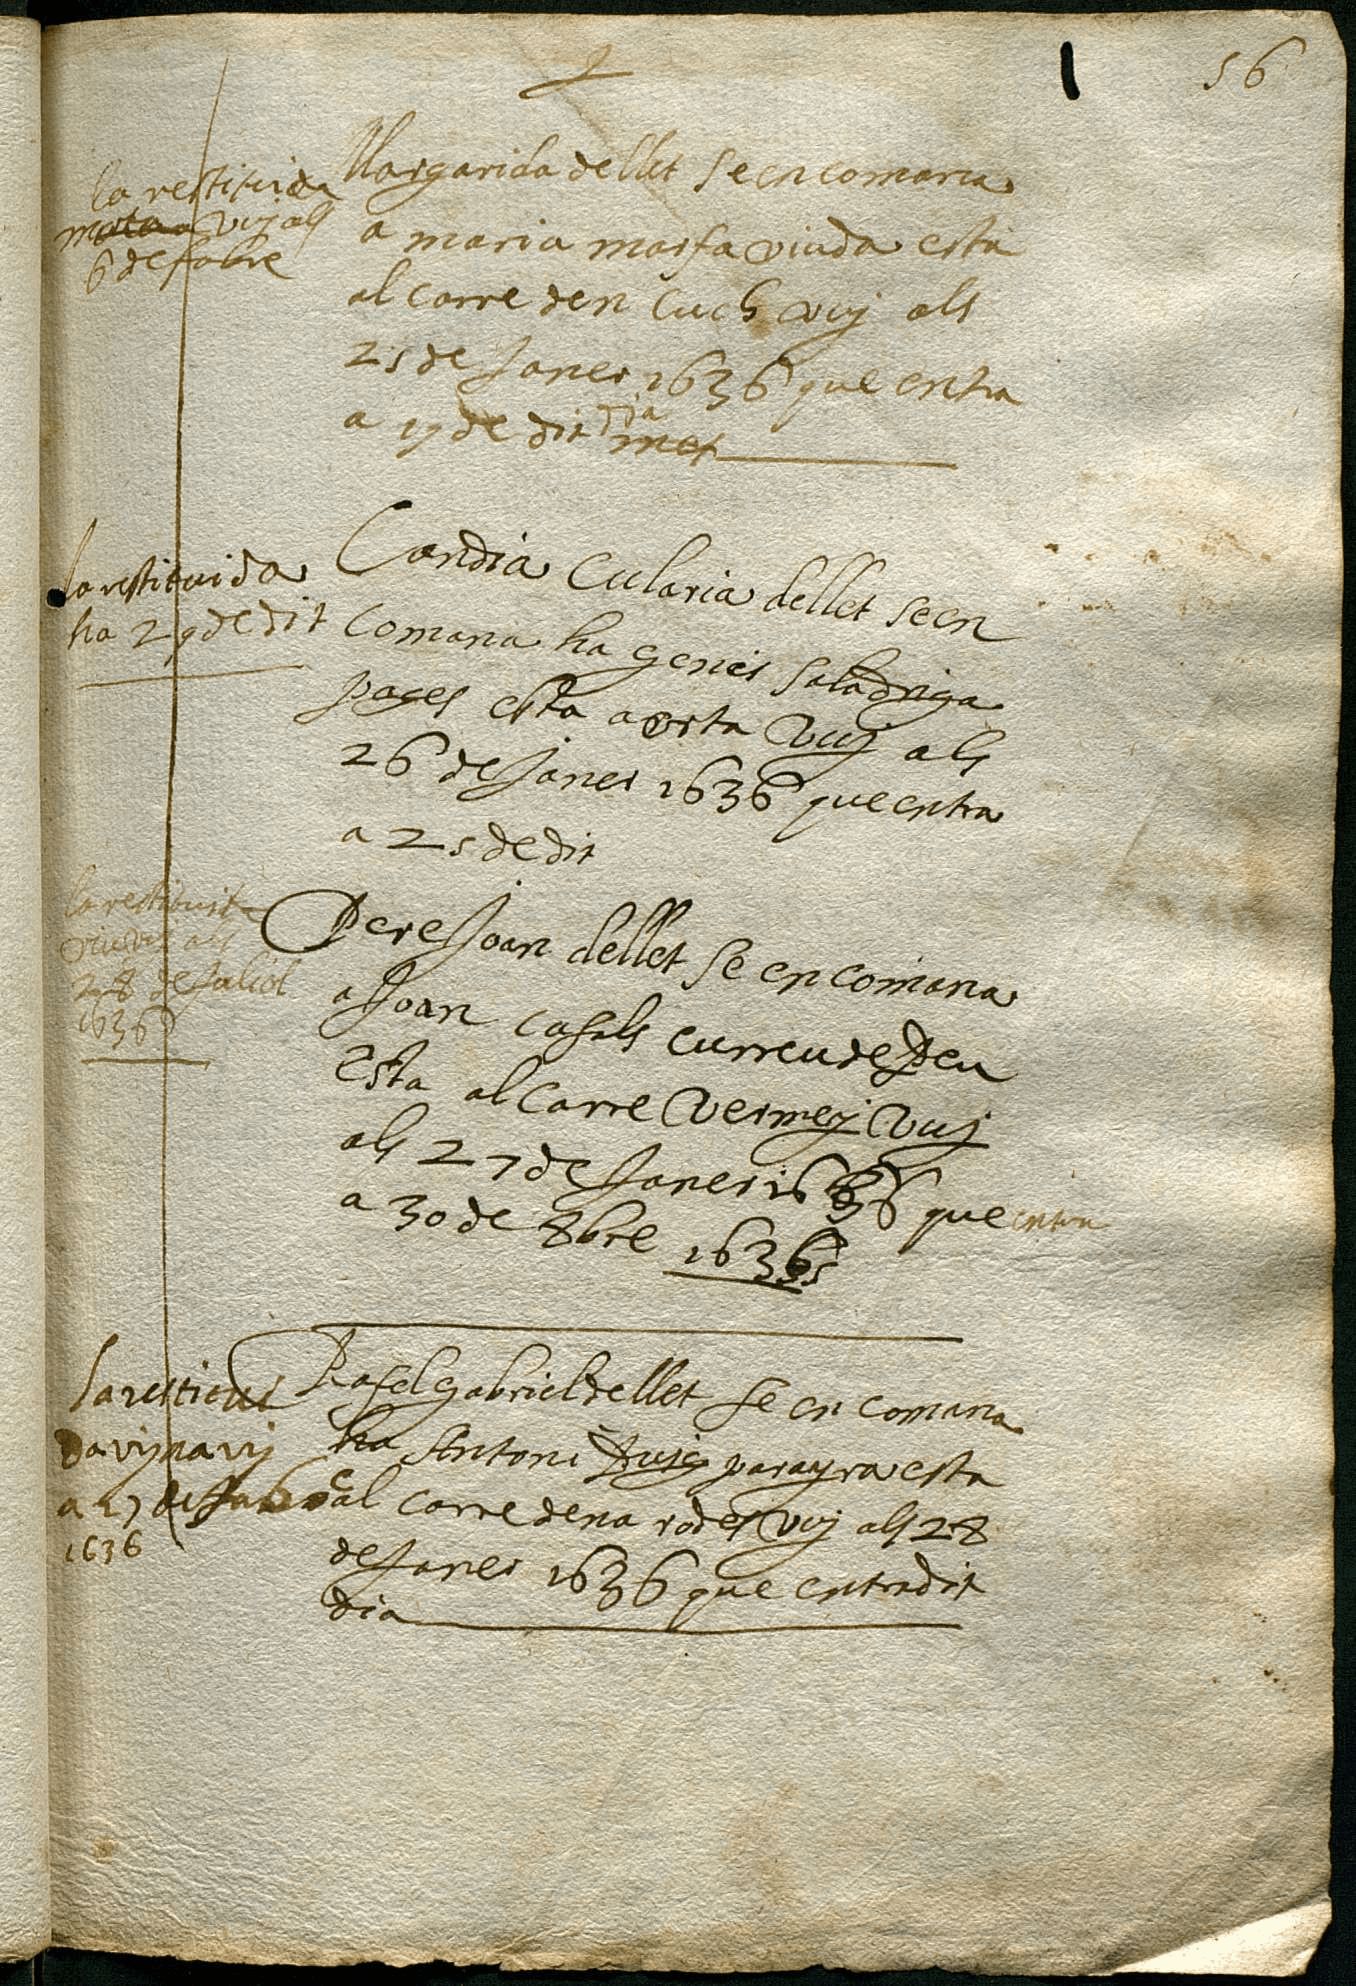 56
la restituida
morta vuj als
6 de fabre
Margarida de llet se en comana
a maria marfa viuda esta
al carre den Cuch vuj als
25 de Janer 1636 que entra
a 19 de dit dia mes
la restituida
ha 29 de dit
Candia Cularia de llet se en
comana ha genis saladriga
pages esta a orta vuj als
26 de Janer 1636 que entra
a 25 de dit
la restituit
als
28 de Juliol
1636
Pere Joan de llet se en comana
a Joan casals curreu de Peu
esta al carre vermey vuj
als 27 de Janer 1636 que entra
a 30 de 8bre 1635
la restitui
da vuj
a 27 de
1636
Rafel gabriel de llet se en comana
ha Antoni Puig parayra esta
al carre dena rodes vuj als 28
de Janer 1636 que entra dit
dia